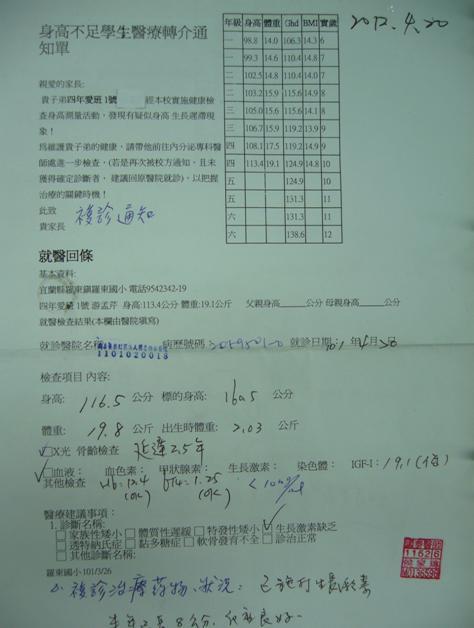 身高不足學生醫療轉介通
知單
2012.4.20
親愛的家長:
貴子弟四年愛班 1號 經本校實施健康檢
查身高測量活動，發現有疑似身高 生長遲滯現
象！
為維護貴子弟的健康，請帶他前往內分泌專科醫
師處進一步檢查，(若是再次被校方通知，且未
獲得確定診斷者， 建議回原醫院就診)，以把握
治療的關鍵時機！
此致
貴家長
複診通知
年級 身高 體重 Ghd BMI 實歲
一 98.8 14.0 106.3 14.3 6
一 99.3 14.6 110.4 14.8 7
二 102.5 14.8 110.4 14.0 7
二 103.2 15.9 115.6 14.9 8
三 105.0 15.6 115.6 14.1 8
三 106.7 15.9 119.2 13.9 9
四 108.1 17.5 119.2 14.9 9
四 113.4 19.1 124.9 14.8 10
五 124.9 10
五 131.3 11
六 131.3 11
六 138.6 12
就醫回條
基本資料:
宜蘭縣羅東鎮羅東國小 電話9542342-19
四年愛班 1號 游孟芹 身高:113.4公分 體重:19.1公斤 父親身高______公分 母親身高______公分
就醫檢查結果(本欄由醫院填寫)
就診醫院名 病歷號碼 就診日期: 101 年 4 月
1101020018
檢查項目 內容:
身高: 116.5 公分 標的身高: 160.5 公分
體重: 19.8 公斤 出生時體重: 2.03 公斤
□X光 骨齡檢查 延遲2.5年
□血液： 血色素： 甲狀腺素： 生長激素： 染色體： IGF-I：
其他檢查 Hb: 12.4 fT4: 1.25
(OK) (OK)
醫療建議事項：
1. 診斷名稱:
□家族性矮小 □體質性遲緩 □特發性矮小 □生長激素缺乏
□透特納氏症 □黏多糖症 □軟骨發育不全 □診治正常
□其他診斷名稱:
羅東國小 101/3/26
複診治療藥物、狀況： 已施打生長激素